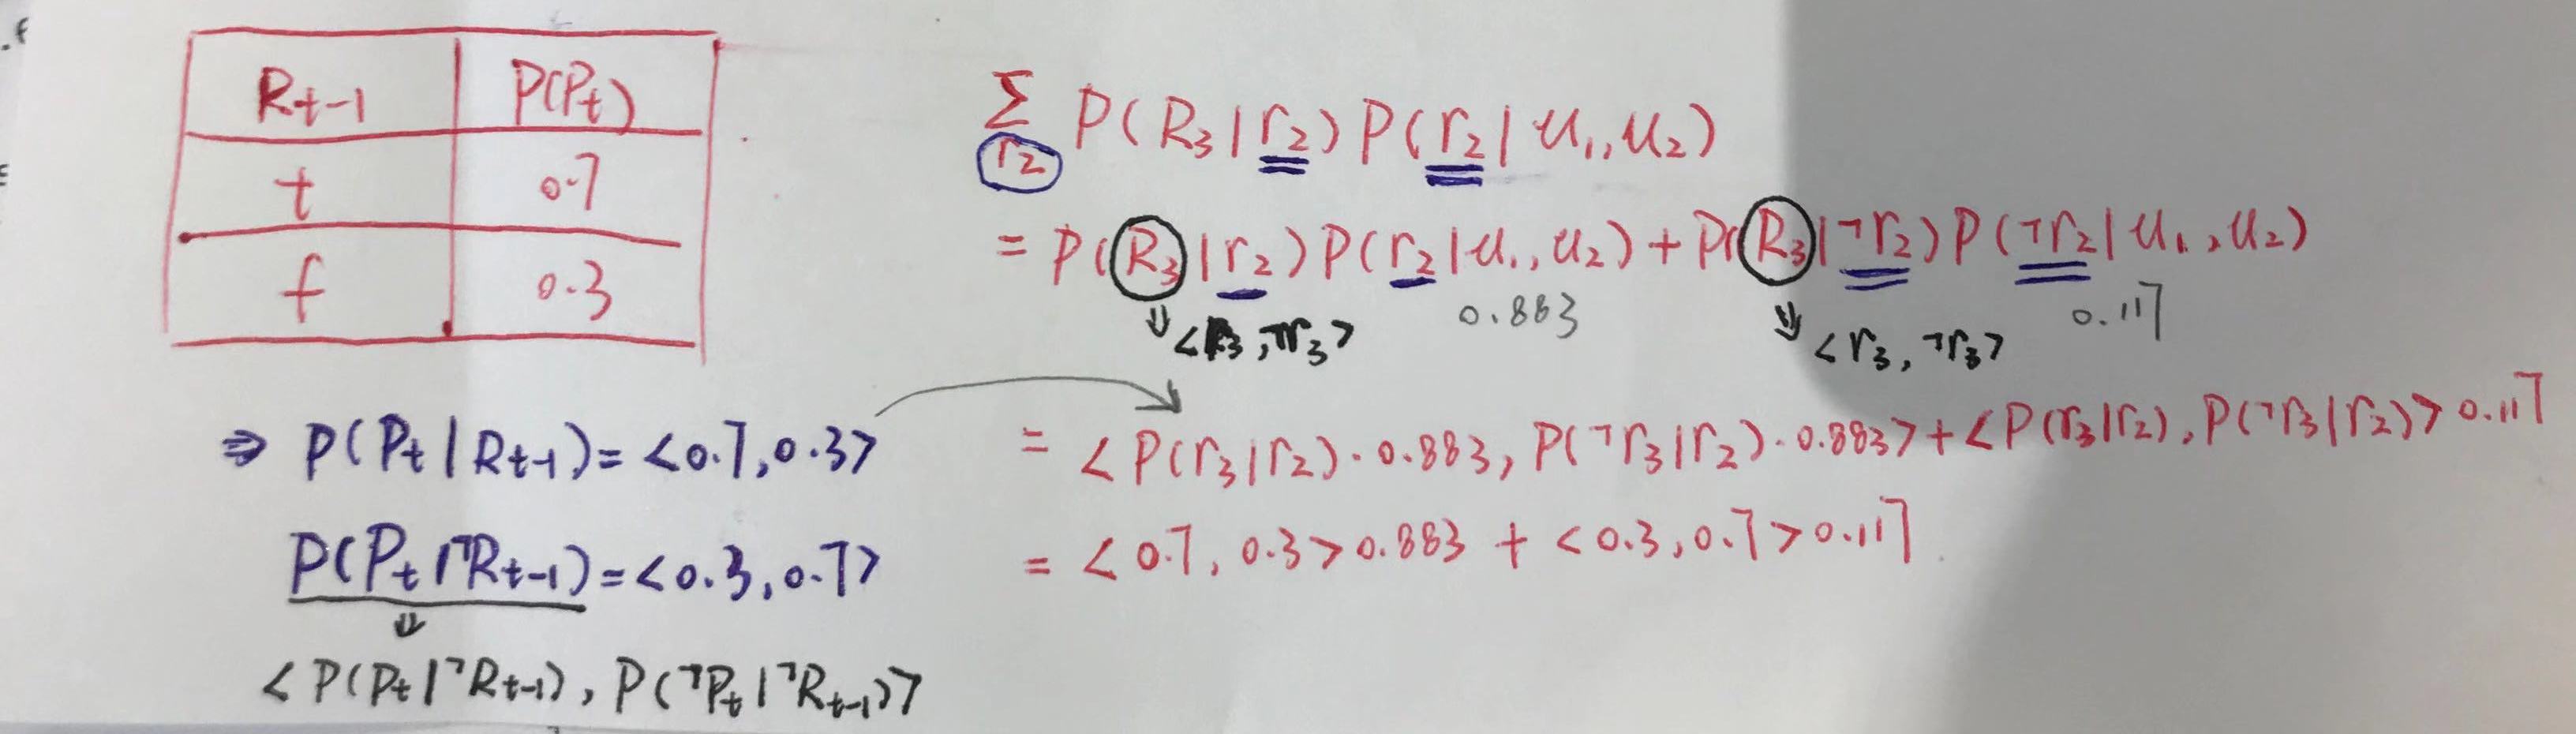 Rt-1 P(Pt)
t 0.7
f 0.3
⇒ P(Pt|Rt-1)=<0.7,0.3>
P(Pt|¬Rt-1)=<0.3,0.7>
⇓
<P(Pt|¬Rt-1), P(¬Pt|¬Rt-1)>
Σ P(R3|r2)P(r2|u1,u2)
r2
= P(R3|r2)P(r2|u1,u2)+P(R3|¬r2)P(¬r2|u1,u2)
0.883 0.117
⇓ <r3,¬r3> ⇓ <r3,¬r3>
= <P(r3|r2)·0.883, P(¬r3|r2)·0.883>+<P(r3|r2), P(¬r3|r2)>0.117
= <0.7, 0.3>0.883 + <0.3,0.7>0.117